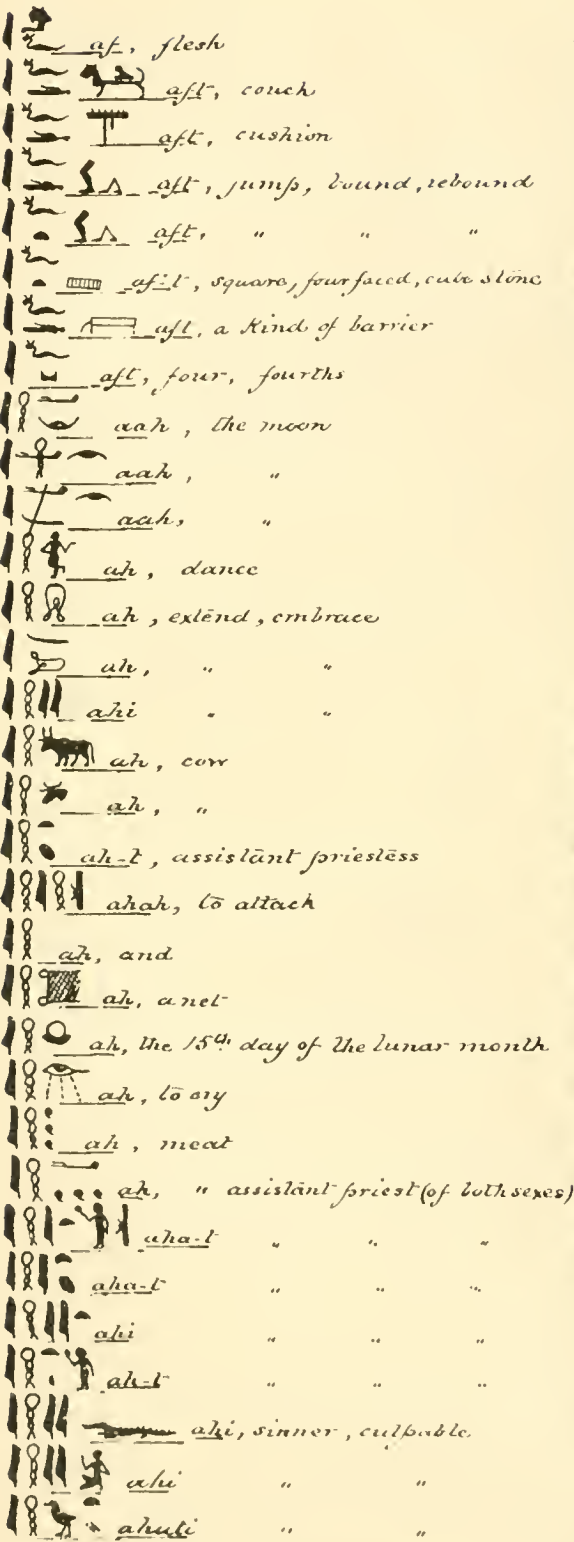 af, flesh
aft, couch
aft, cushion
aft, jump, bound, rebound
aft, " " "
af-t, square, four faced, cube stone
aft, a kind of barrier
aft, four, fourths
aah, the moon
aah, "
aah, "
ah, dance
ah, extend, embrace
ah, " "
ahi " "
ah, cow
ah, "
ah-t, assistant priestess
ahah, to attack
ah, and
ah, a net
ah, the 15th day of the lunar month
ah, to cry
ah, meat
ah, " assistant priest (of both sexes)
aha-t " " "
aha-t " " "
ahi " " "
ah-t " " "
ahi, sinner, culpable
ahi " "
ahuti " "